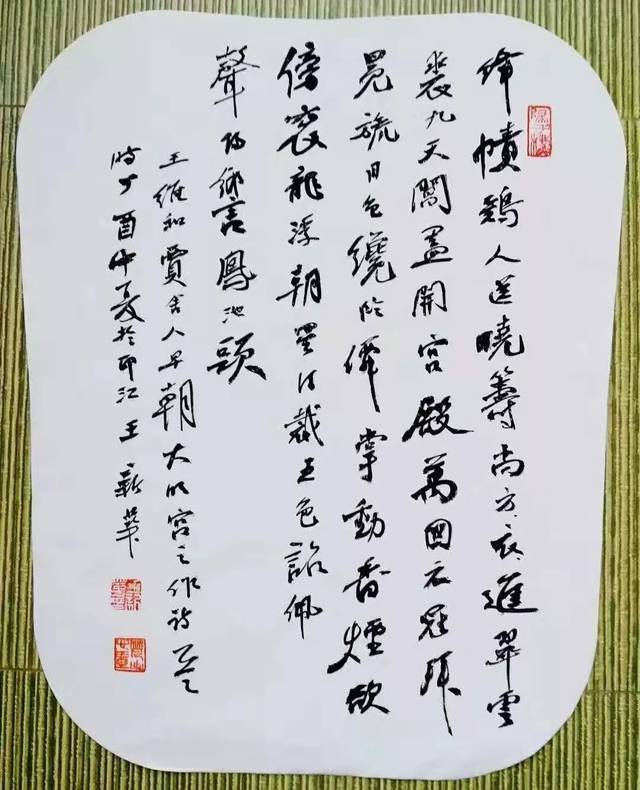 绛幘鷄人送曉籌尚方衣進翠雲
裘九天閶闔開宮殿萬國衣冠拜
冕旒日色纔臨僊掌動香煙欲
傍衮龍浮朝罷須裁五色詔佩
聲歸嚮鳳池頭
王維和賈舍人早朝大明宮之作詩一首
時丁酉中夏於江王新華